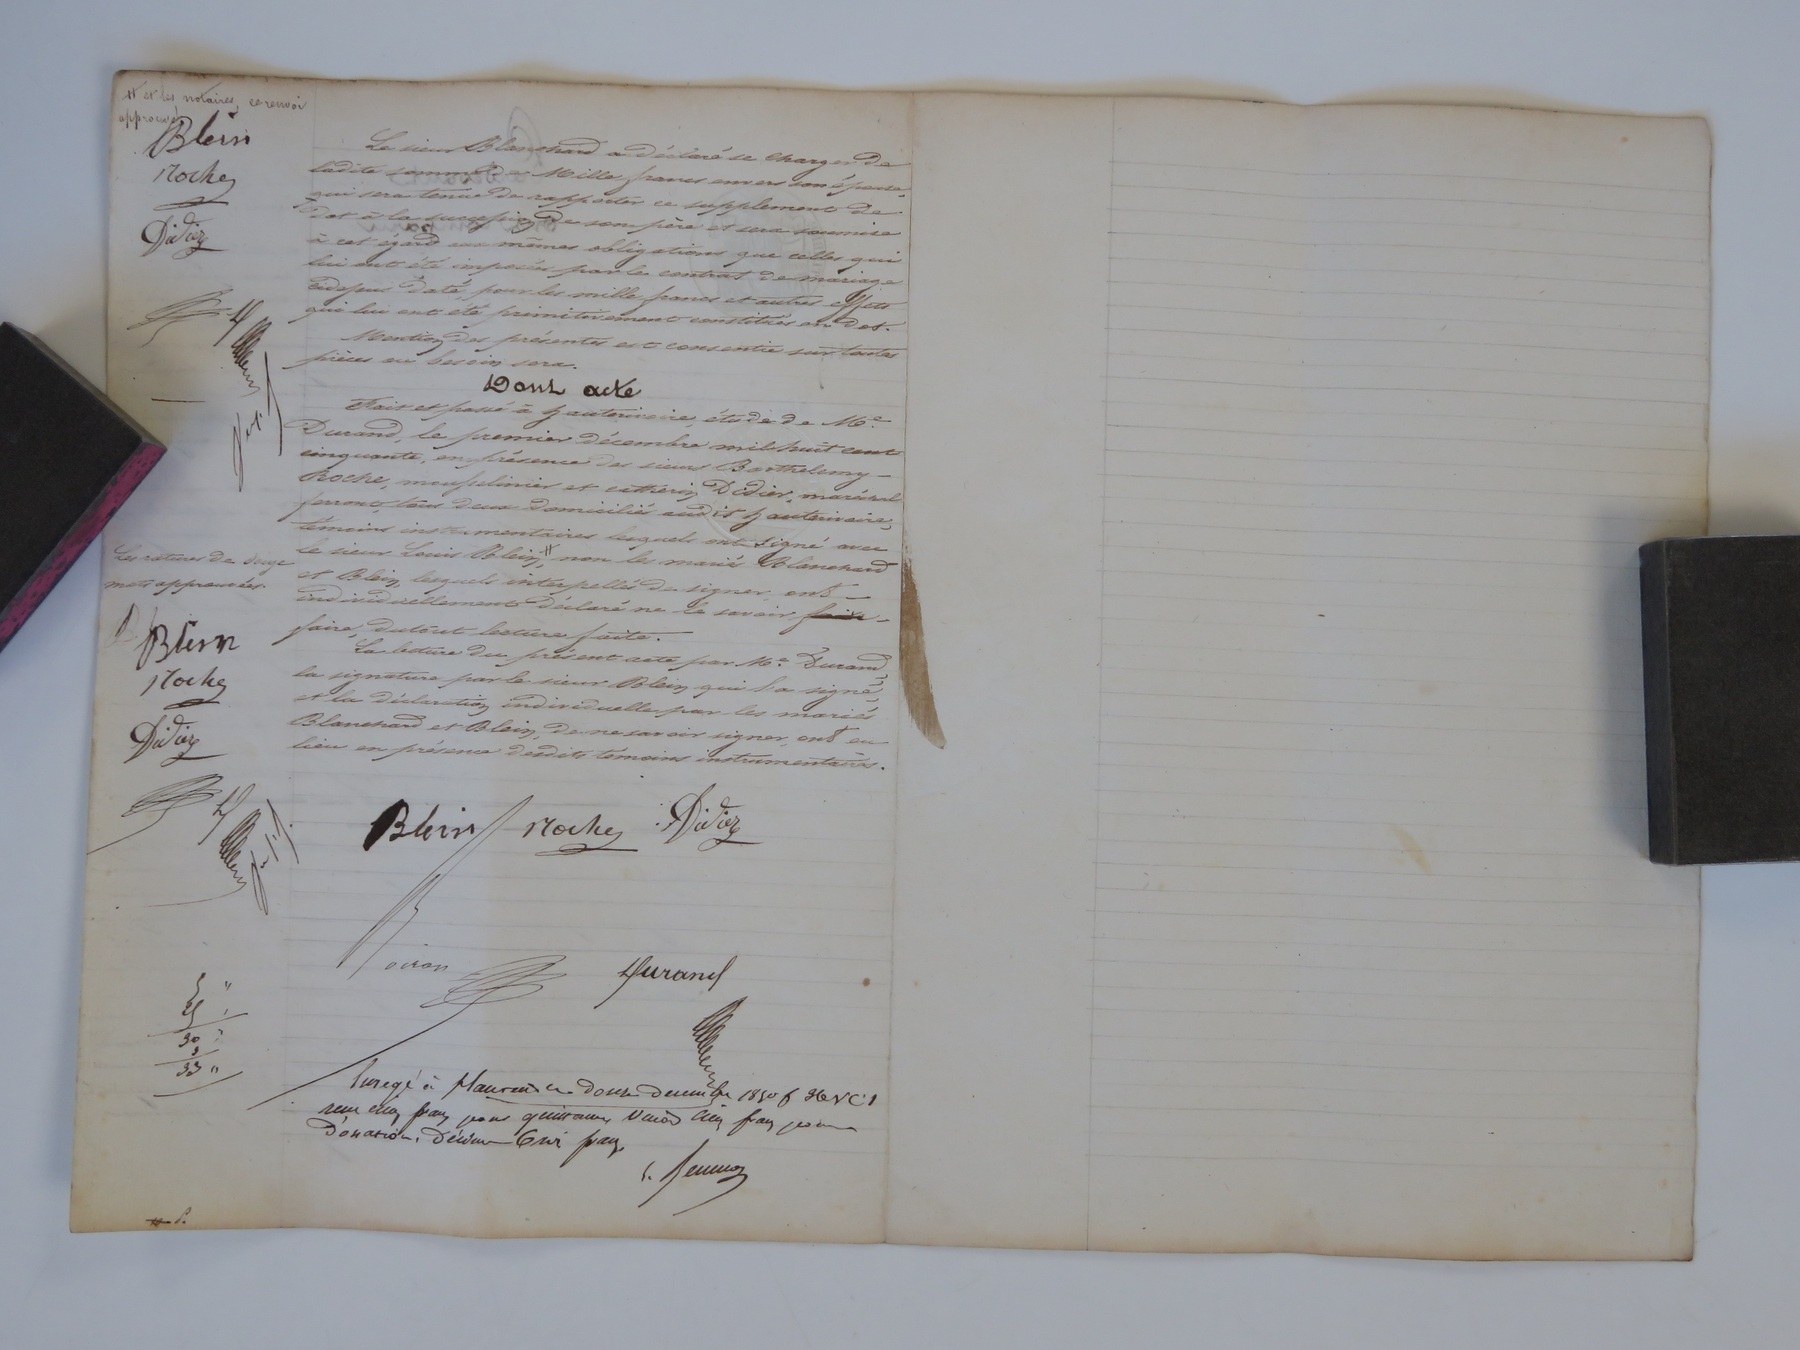 # et les notaires, ce renvoi
approuvé
Blein
Roche
Didier
Le sieur Blanchard a déclaré se charger de
ladite somme de Mille francs envers son épouse
qui sera tenue de rapporter ce supplément de
dot à la succession de son père et sera soumise
à cet égard aux mêmes obligations que celles qui
lui ont été imposées par le contrat de mariage
cidessus daté, pour les mille francs et autres effets
qui lui ont été primitivement constitués en dot.
Mention des présentes est consentie sur toutes
pièces où besoin sera.
Dont acte
Fait et passé à hauterivoire, étude de Me.
Durand, le premier décembre mil huit cent
cinquante, en présence des sieurs Barthelemy
Roche, mousselinier et Didier, maréchal
ferrant tous deux domiciliés audit hauterivoire,
témoins instrumentaires lesquels ont signé avec
le sieur Louis Blein, # non les mariés Blanchard
et Blein, lesquels interpellés de signer, ont
individuellement déclaré ne le savoir faire
faire, dutout lecture faite.
La lecture du présent acte par Me. Durand,
la signature par le sieur Blein qui l'a signé,
et la déclaration individuelle par les mariés
Blanchard et Blein, de ne savoir signer, ont eu
lieu en présence desdits témoins instrumentaires.
Les ratures de douze
mots approuvées.
Blein
Roche
Didier
Blein Roche Didier
Durand
5 "
25
30
3
33 "
Enregé à douze decembre 1850 f 36 V C 1
reçu cinq francs pour quittance, Vingt Cinq francs pour
Donation, Décime trois francs